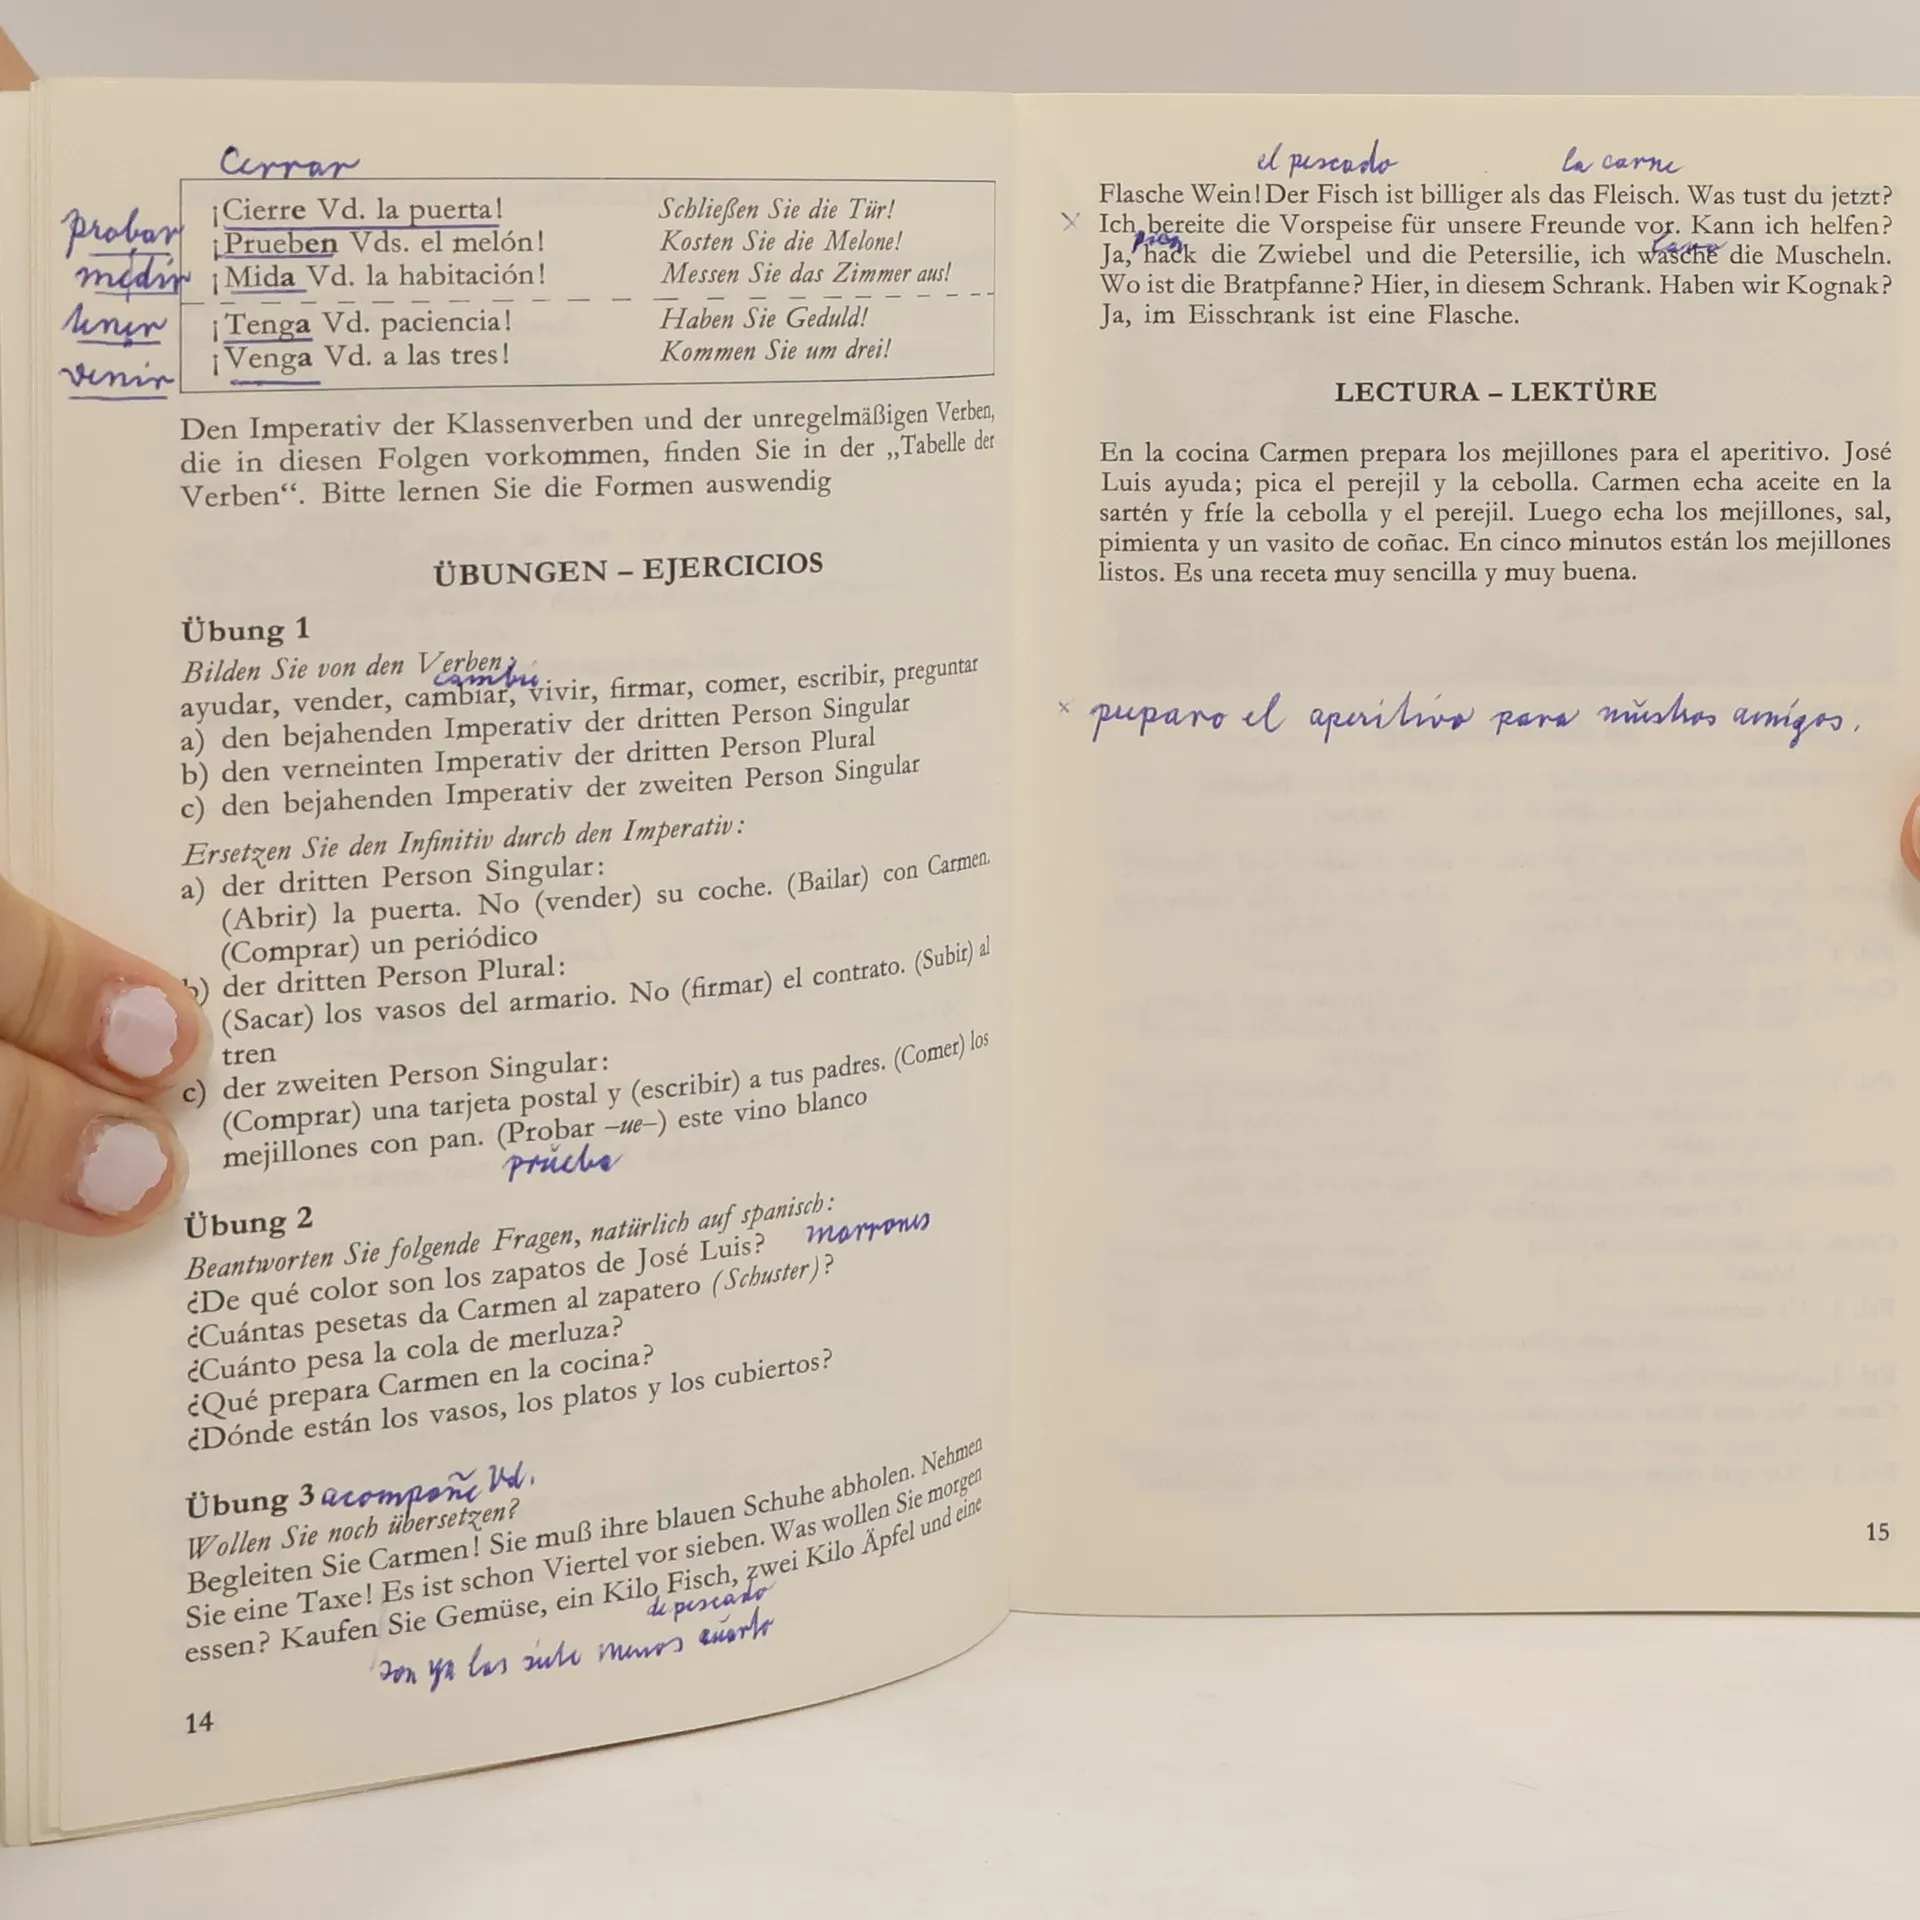 Cerrar
probar
medir
tener
venir
¡Cierre Vd. la puerta! Schließen Sie die Tür!
¡Prueben Vds. el melón! Kosten Sie die Melone!
¡Mida Vd. la habitación! Messen Sie das Zimmer aus!
¡Tenga Vd. paciencia! Haben Sie Geduld!
¡Venga Vd. a las tres! Kommen Sie um drei!
Den Imperativ der Klassenverben und der unregelmäßigen Verben,
die in diesen Folgen vorkommen, finden Sie in der „Tabelle der
Verben“. Bitte lernen Sie die Formen auswendig
ÜBUNGEN – EJERCICIOS
Übung 1
Bilden Sie von den Verben:
ayudar, vender, cambiar, vivir, firmar, comer, escribir, preguntar
a) den bejahenden Imperativ der dritten Person Singular
b) den verneinten Imperativ der dritten Person Plural
c) den bejahenden Imperativ der zweiten Person Singular
Ersetzen Sie den Infinitiv durch den Imperativ:
a) der dritten Person Singular:
(Abrir) la puerta. No (vender) su coche. (Bailar) con Carmen.
(Comprar) un periódico
b) der dritten Person Plural:
(Sacar) los vasos del armario. No (firmar) el contrato. (Subir) al
tren
c) der zweiten Person Singular:
(Comprar) una tarjeta postal y (escribir) a tus padres. (Comer) los
mejillones con pan. (Probar –ue–) este vino blanco
prueba
Übung 2
Beantworten Sie folgende Fragen, natürlich auf spanisch:
¿De qué color son los zapatos de José Luis? marrones
¿Cuántas pesetas da Carmen al zapatero (Schuster)?
¿Cuánto pesa la cola de merluza?
¿Qué prepara Carmen en la cocina?
¿Dónde están los vasos, los platos y los cubiertos?
Übung 3 acompañe Vd.
Wollen Sie noch übersetzen?
Begleiten Sie Carmen! Sie muß ihre blauen Schuhe abholen. Nehmen
Sie eine Taxe! Es ist schon Viertel vor sieben. Was wollen Sie morgen
essen? Kaufen Sie Gemüse, ein Kilo Fisch, zwei Kilo Äpfel und eine
de pescado
son ya las siete menos cuarto
14
el pescado la carne
Flasche Wein! Der Fisch ist billiger als das Fleisch. Was tust du jetzt?
x Ich bereite die Vorspeise für unsere Freunde vor. Kann ich helfen?
pica lavo
Ja, hack die Zwiebel und die Petersilie, ich wasche die Muscheln.
Wo ist die Bratpfanne? Hier, in diesem Schrank. Haben wir Kognak?
Ja, im Eisschrank ist eine Flasche.
LECTURA – LEKTÜRE
En la cocina Carmen prepara los mejillones para el aperitivo. José
Luis ayuda; pica el perejil y la cebolla. Carmen echa aceite en la
sartén y fríe la cebolla y el perejil. Luego echa los mejillones, sal,
pimienta y un vasito de coñac. En cinco minutos están los mejillones
listos. Es una receta muy sencilla y muy buena.
x preparo el aperitivo para nuestros amigos.
15